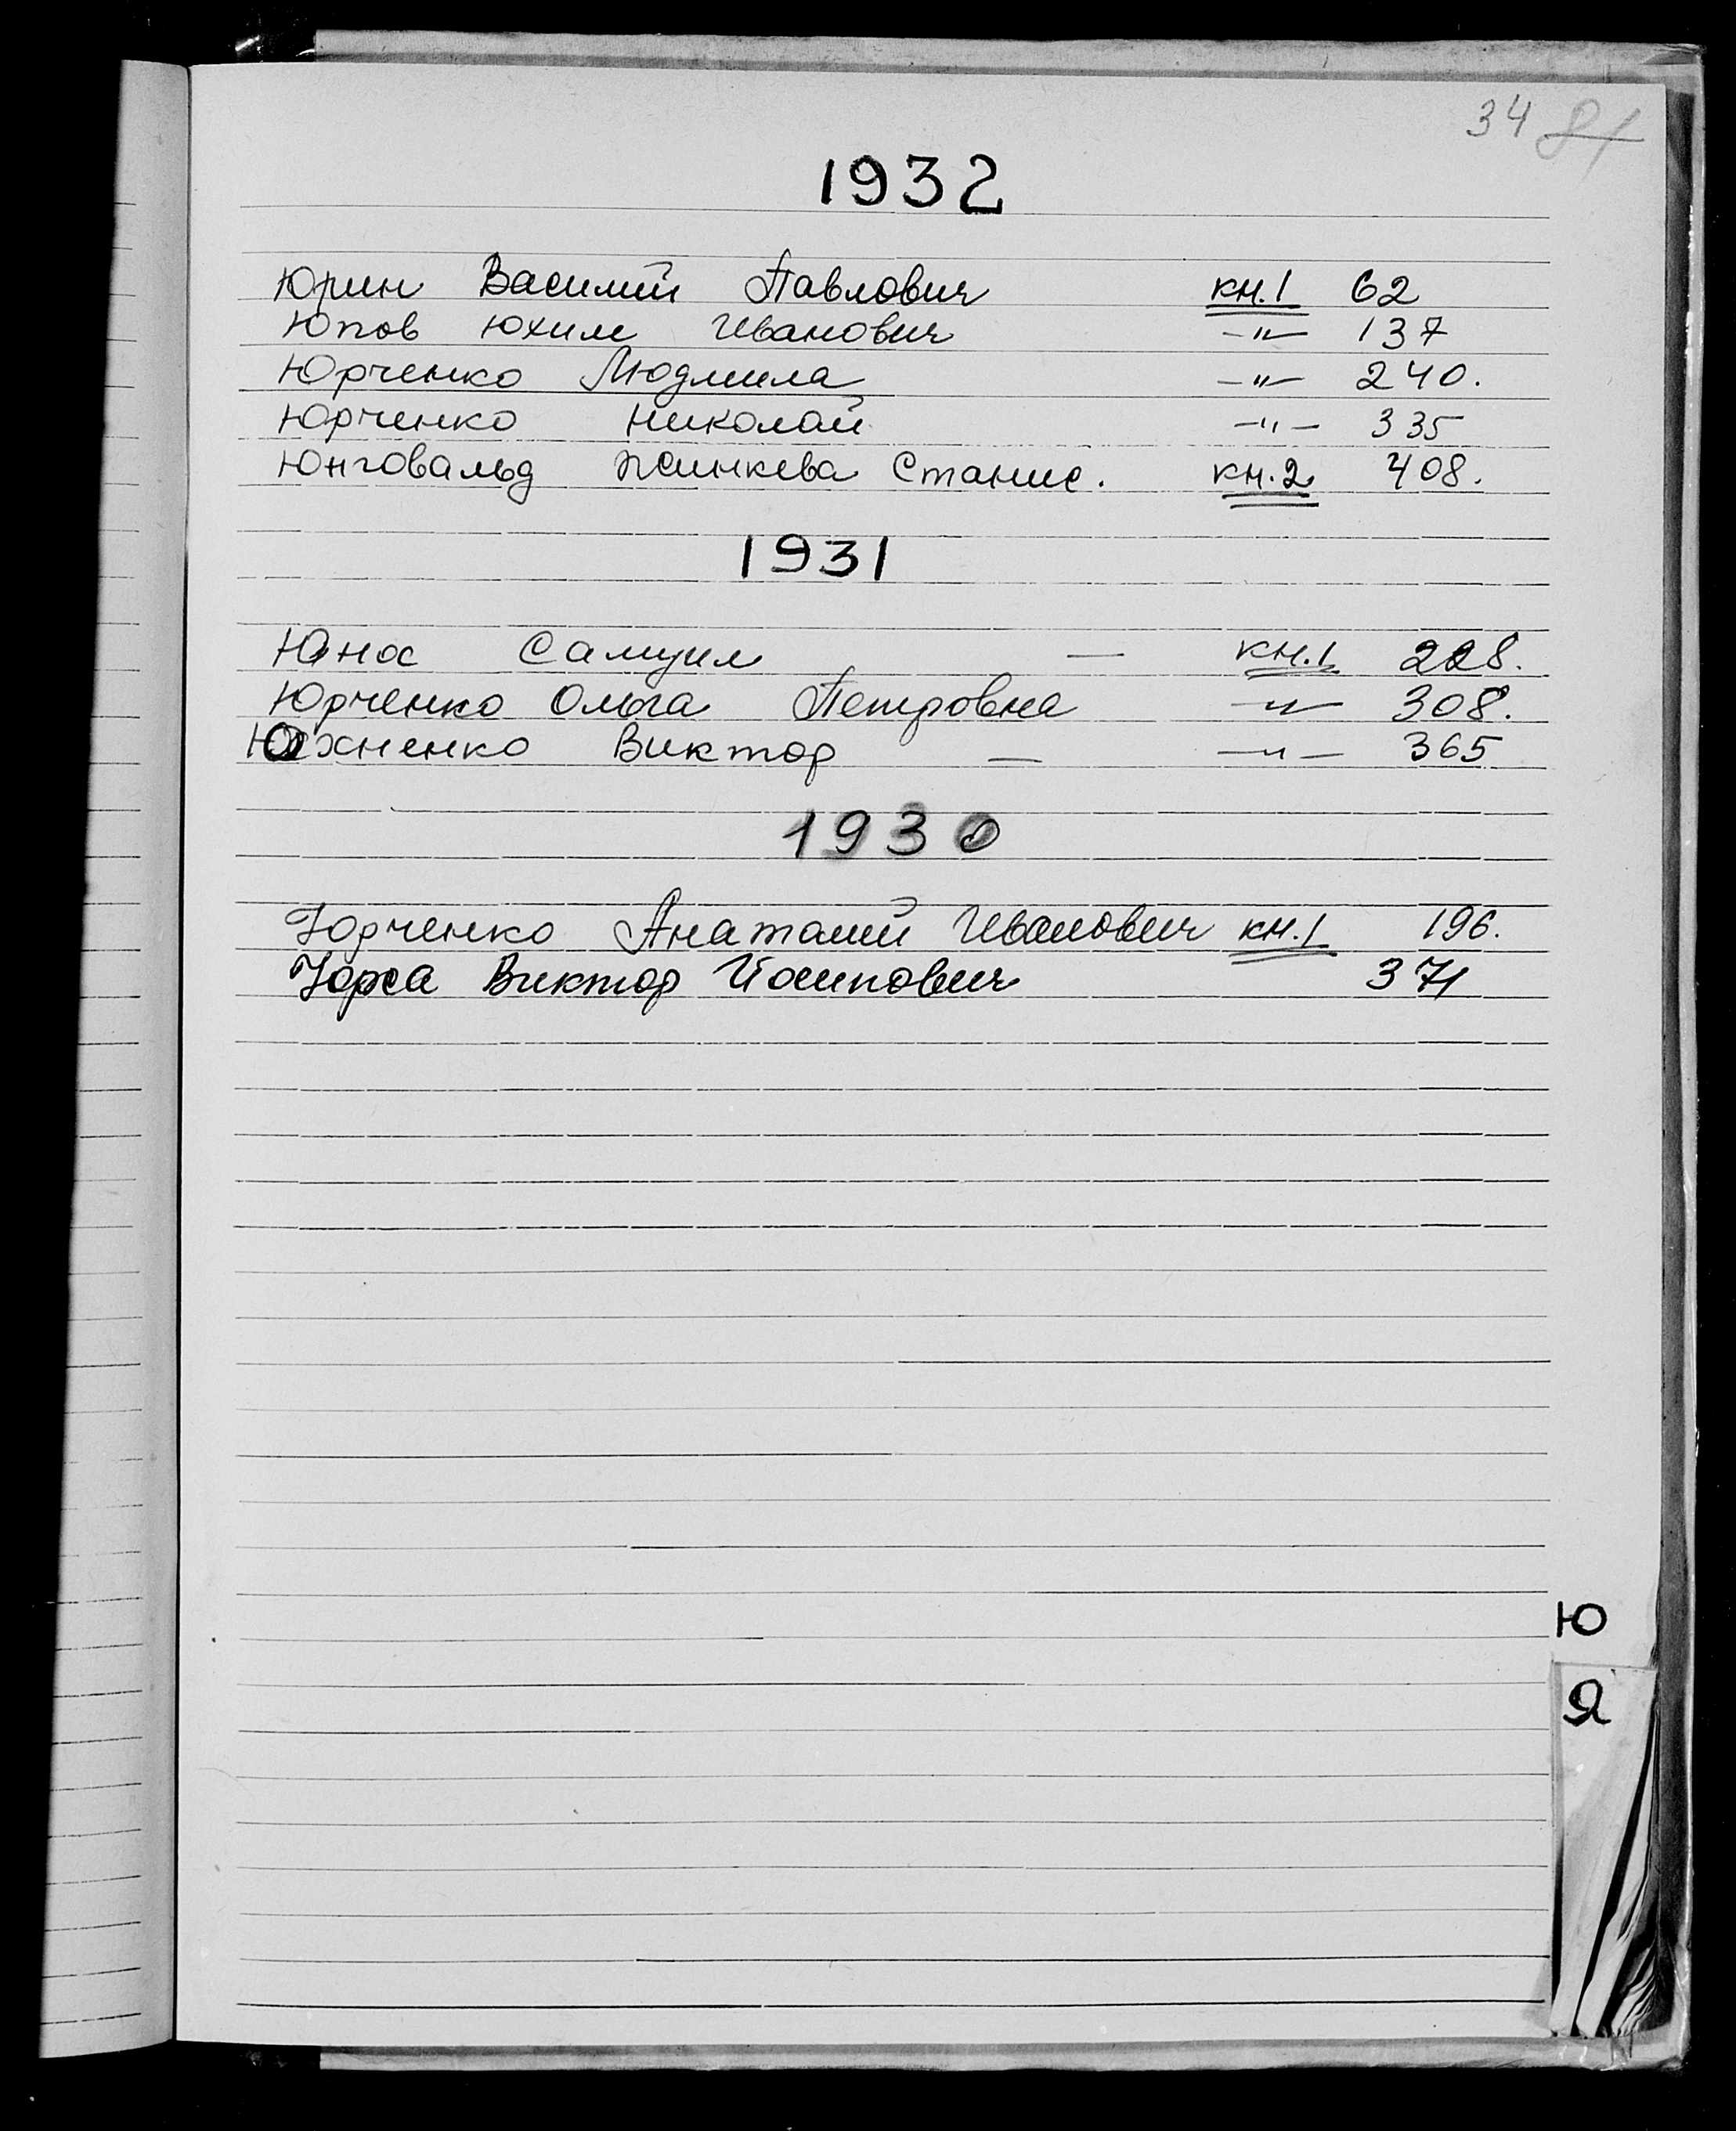 34 81
1932
Юрин Василий Павлович кн.1 62
Юпов Юхим Иванович —"— 137
Юрченко Людмила —"— 240.
Юрченко Николай —"— 335
Юнговальд Станис. кн.2 408.
1931
Юнос Самуил — кн.1 228.
Юрченко Ольга Петровна —"— 308.
Юхненко Виктор — —"— 365
1930
Юрченко Анатолий Иванович кн.1 196.
Виктор Йосипович 371
Ю
Я